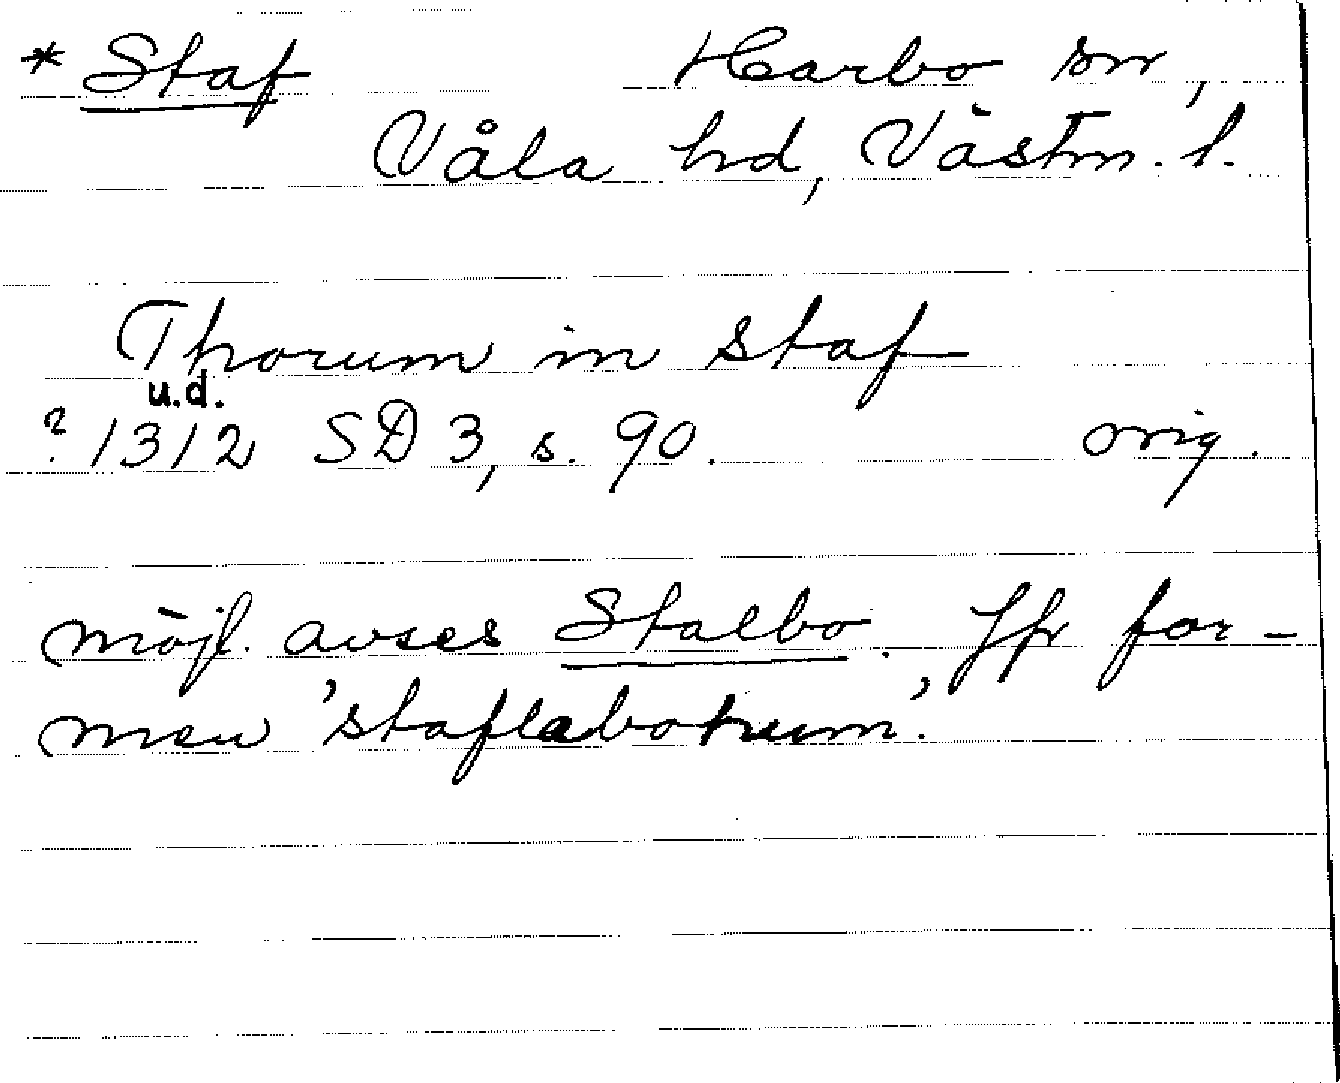 * Staf Harbo sn,
Våla hd, Västm. l.
Thorum in staf
u.d.
? 1312 SD 3, s. 90. orig.
möjl. avses Stalbo. Jfr for-
men 'staflabotrum'.